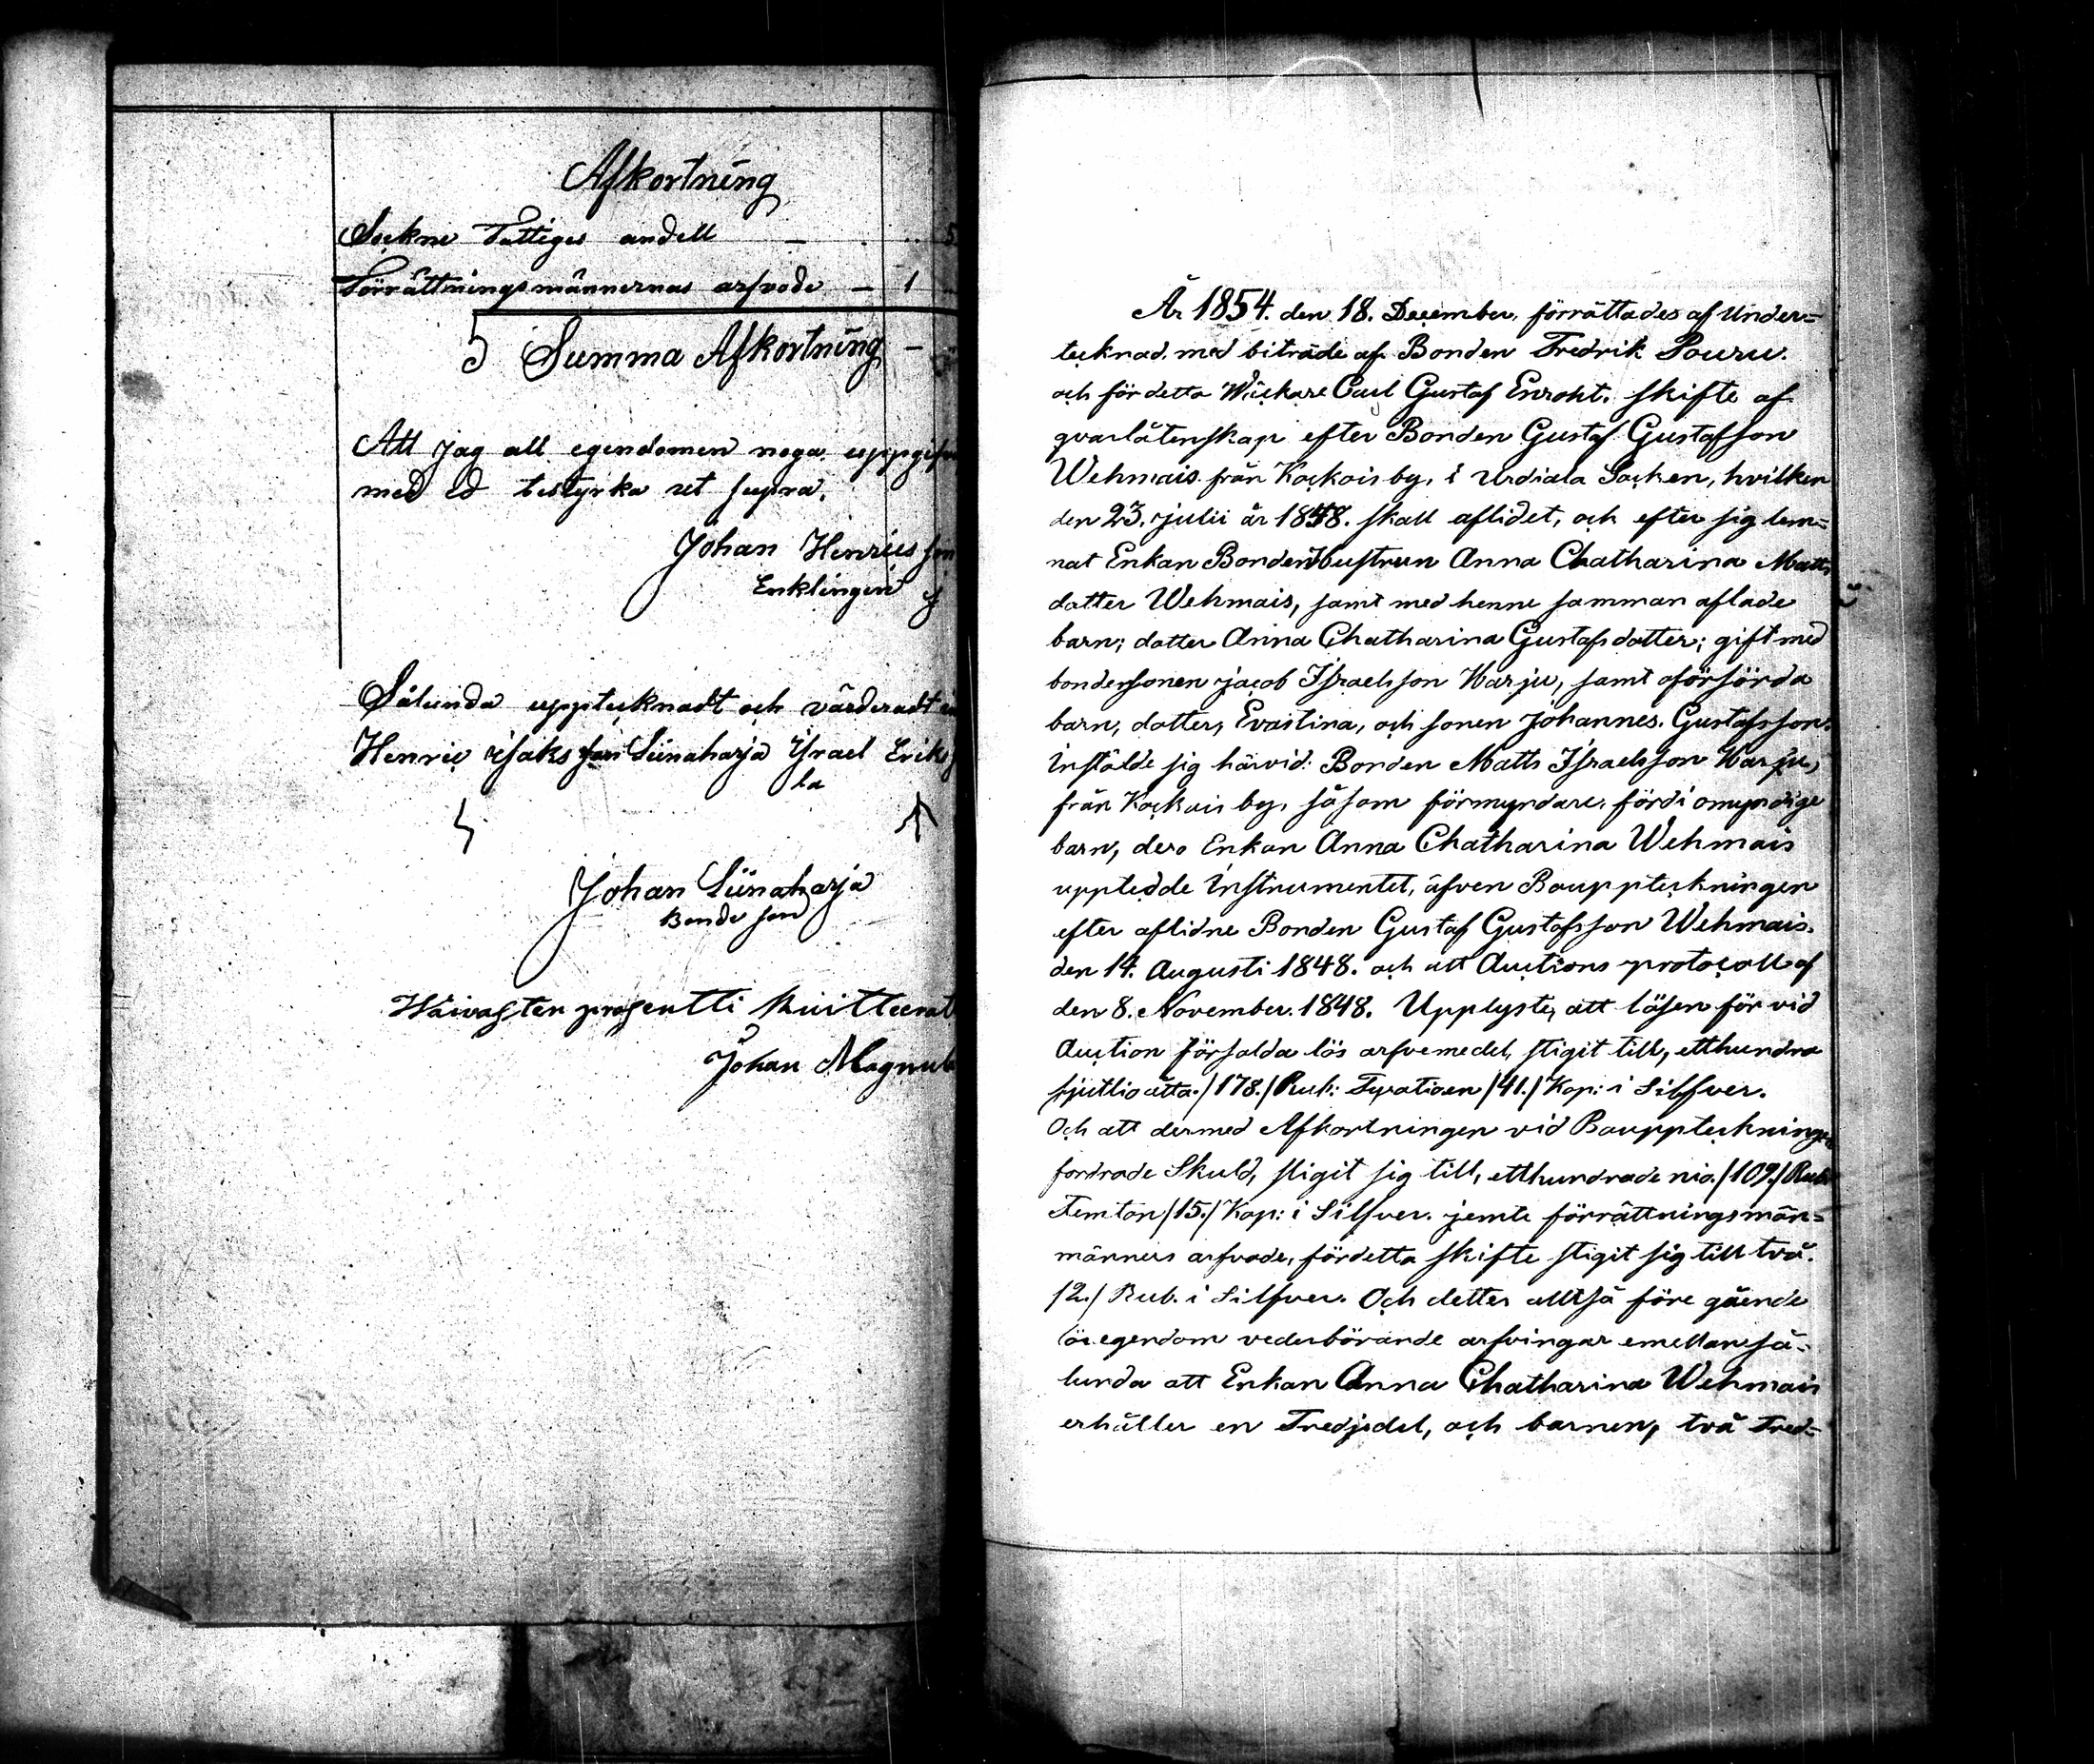 Afkortning
Sockne Fattiges andell — . . . 5
Förrättningsmännernas arfvode — 1
5 Summa Afkortning —
Att jag all egendomen noga uppgif
med ed bestyrka ut supra.
Johan Henrics son
Enklingen
Sålunda upptecknadt och värderadt
Henric Isaks son Liinaharja Israel Eriks
la
Johan Liinaharja
Bonde son
Waivasten prosentti kuitteerat
Johan Magnu
År 1854. den 18. December, förrättades af Under=
tecknad, med biträde af Bonden Fredrik Pouru.
och för detta Wäckare Carl Gustaf Enroht. skifte af
qvarlåtenskap efter Bonden Gustaf Gustafsson
Wehmais från Kockois by, i Urdiala Socken, hvilken
den 23. julii år 1848. skall aflidet, och efter sig lem=
nat Enkan Bonden Hustrun Anna Chatharina Matts
dotter Wehmais, samt med henne samman aflade
barn; dotter Anna Chatharina Gustafsdotter; gift med
bondersonen jacob Israelsson Harju, samt oförsörda
barn, dotter, Evastina, och sonen Johannes. Gustafsson.
Instälde sig härvid: Bonden Matts Israelsson Harju,
från Kockois by, såsom förmyndare, för di omyndige
barn, dero Enkan Anna Chatharina Wehmais
uppteдde Instrumentet, äfven Bouppteckningen
efter aflidne Bonden Gustaf Gustafsson Wehmais.
den 14. Augusti 1848. och ett Auctions protocoll af
den 8. November. 1848. Upplyste, att lösen för vid
Auction försålda lös arfvemedel, stigit till, etthundra
sjuttio åtta./178./Rub: Fyratioen/41./Kop: i Silfver.
Och att dermed Afkortningen vid Bouppteckningen
fordrade Skuld, stigit sig till, etthundrade nio./109./Rub.
Femton/15./Kop: i Silfver. jemte förrättningsmän=
männers arfvode, fördetta skifte stigit sig till två.
/2./ Rub. i Silfver. Och detter alltså före gående
lösegendom vederbörande arfvingar emellan så=
lunda att Enkan Anna Chatharina Wehmais
erhåller en Tredjedel, och barnen, två Tred=